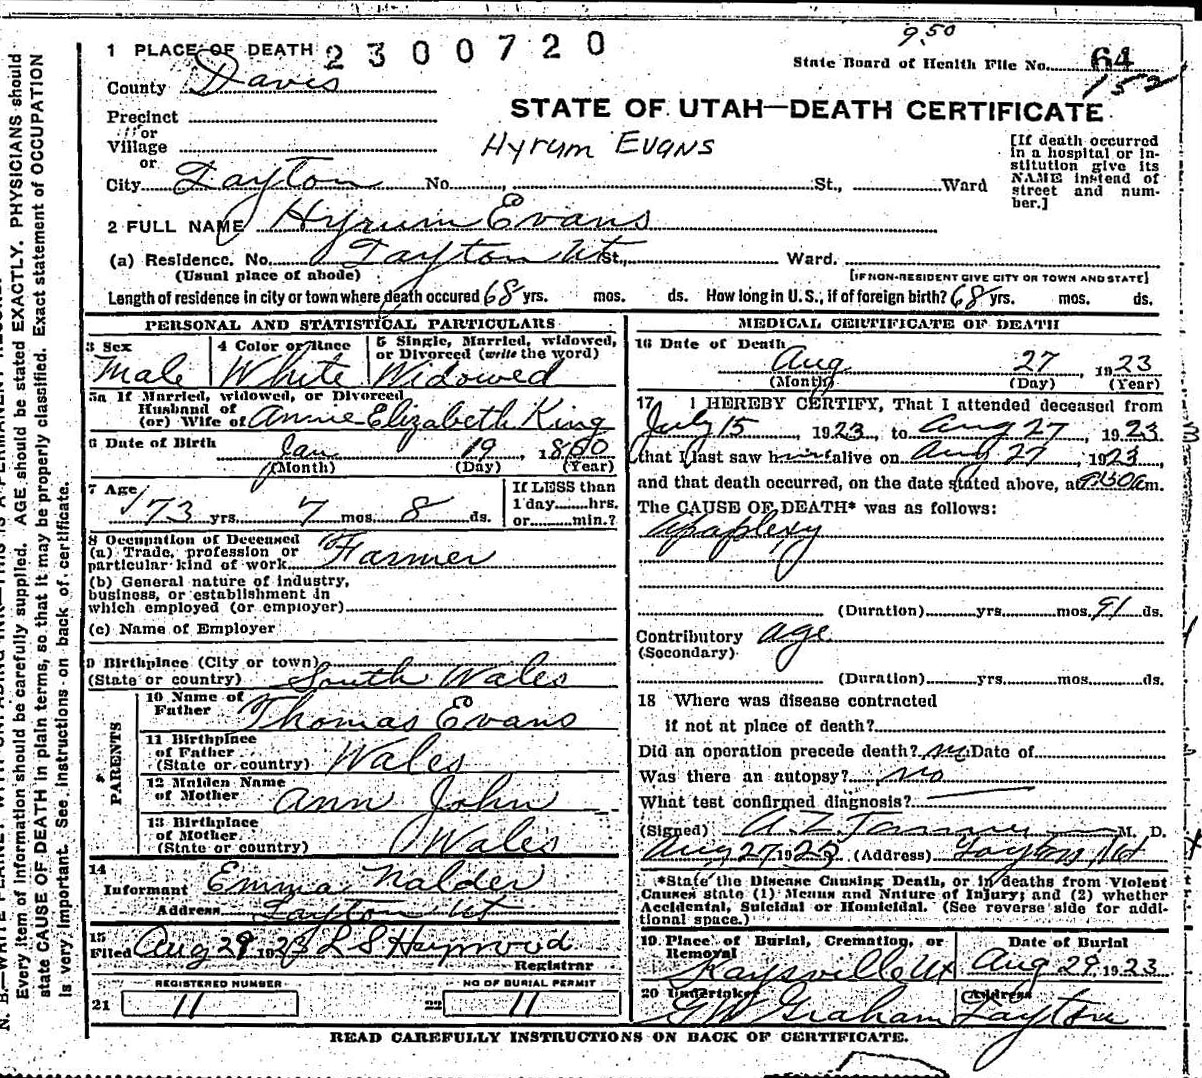 9.50
1 PLACE OF DEATH 2300720
State Board of Health File No. 64
152
County Davis
STATE OF UTAH—DEATH CERTIFICATE
Precinct
or
Village
Hyrum Evans
[If death occurred in a hospital or in-
stitution give its NAME instead of street and num-
ber.]
or
City Layton No. , St., Ward
2 FULL NAME Hyrum Evans
(a) Residence. No. Layton Ut St., Ward.
(Usual place of abode) [IF NON-RESIDENT GIVE CITY OR TOWN AND STATE]
Length of residence in city or town where death occured 68 yrs. mos. ds. How long in U.S., if of foreign birth? 68 yrs. mos. ds.
PERSONAL AND STATISTICAL PARTICULARS
3 Sex
Male
4 Color or Race
White
5 Single, Married, widowed,
or Divorced (write the word)
Widowed
5a If Married, widowed, or Divorced
Husband of
(or) Wife of Annie Elizabeth King
6 Date of Birth
Jan 19, 1850
(Month) (Day) (Year)
7 Age
73 yrs. 7 mos. 8 ds.
If LESS than
1 day hrs.
or min.?
8 Occupation of Deceased
(a) Trade, profession or
particular kind of work Farmer
(b) General nature of industry,
business, or establishment in
which employed (or employer)
(c) Name of Employer
9 Birthplace (City or town)
(State or country) South Wales
PARENTS
10 Name of
Father Thomas Evans
11 Birthplace
of Father
(State or country) Wales
12 Maiden Name
of Mother Ann John
13 Birthplace
of Mother
(State or country) Wales
14
Informant Emma Nalder
Address Layton Ut
15
Filed Aug 29 1923 L S Heywood
Registrar
REGISTERED NUMBER
21 11
NO OF BURIAL PERMIT
22 11
MEDICAL CERTIFICATE OF DEATH
16 Date of Death
Aug 27, 1923
(Month) (Day) (Year)
17 I HEREBY CERTIFY, That I attended deceased from
July 15, 1923, to Aug 27, 1923
that I last saw him alive on Aug 27, 1923
and that death occurred, on the date stated above, at 9:50 am.
The CAUSE OF DEATH* was as follows:
Apoplexy
(Duration) yrs. mos. 91 ds.
Contributory age
(Secondary)
(Duration) yrs. mos. ds.
18 Where was disease contracted
if not at place of death?
Did an operation precede death? no Date of
Was there an autopsy? no
What test confirmed diagnosis?
(Signed) A. Z. Tanner M. D.
Aug 27 1923 (Address) Layton, Ut
*State the Disease Causing Death, or in deaths from Violent
Causes state (1) Means and Nature of Injury; and (2) whether
Accidental, Suicidal or Homicidal. (See reverse side for addi-
tional space.)
19 Place of Burial, Cremation, or
Removal
Kaysville Ut
Date of Burial
Aug 29, 1923
20 Undertaker
GW Graham
Address
Layton
READ CAREFULLY INSTRUCTIONS ON BACK OF CERTIFICATE.
Every item of information should be carefully supplied. AGE should be stated EXACTLY. PHYSICIANS should
state CAUSE OF DEATH in plain terms, so that it may be properly classified. Exact statement of OCCUPATION
is very important. See instructions on back of certificate.